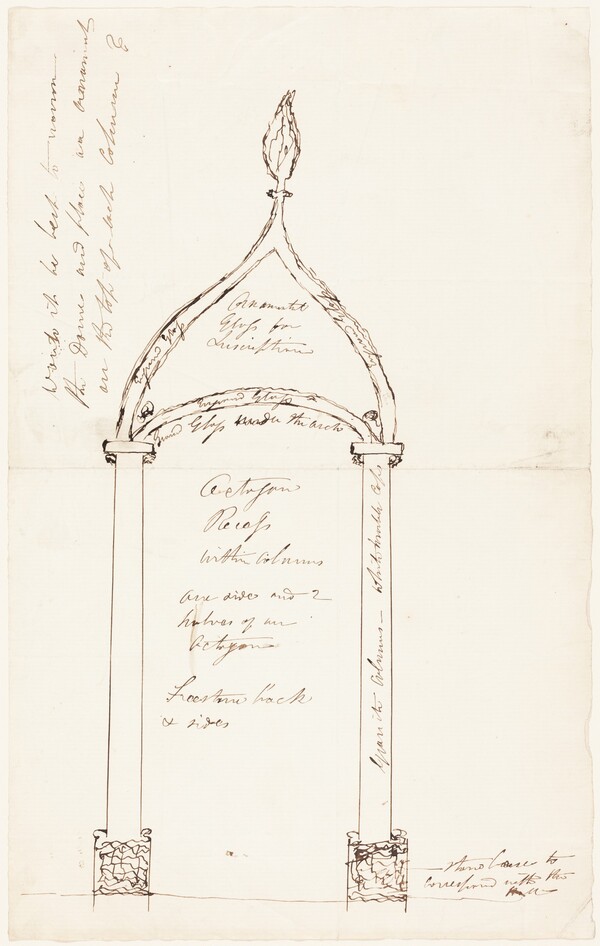 Would it be best to
the Dome and place an ornament
on the top of each Column
Ornamented
Glass for
Inscription
Ground Glass
Ground Glass under the arch
Octagon
Recess
within columns
one side and 2
halves of an
Octagon
Freestone back
& sides
Granite Columns – White marble Caps
stone base to
correspond with the